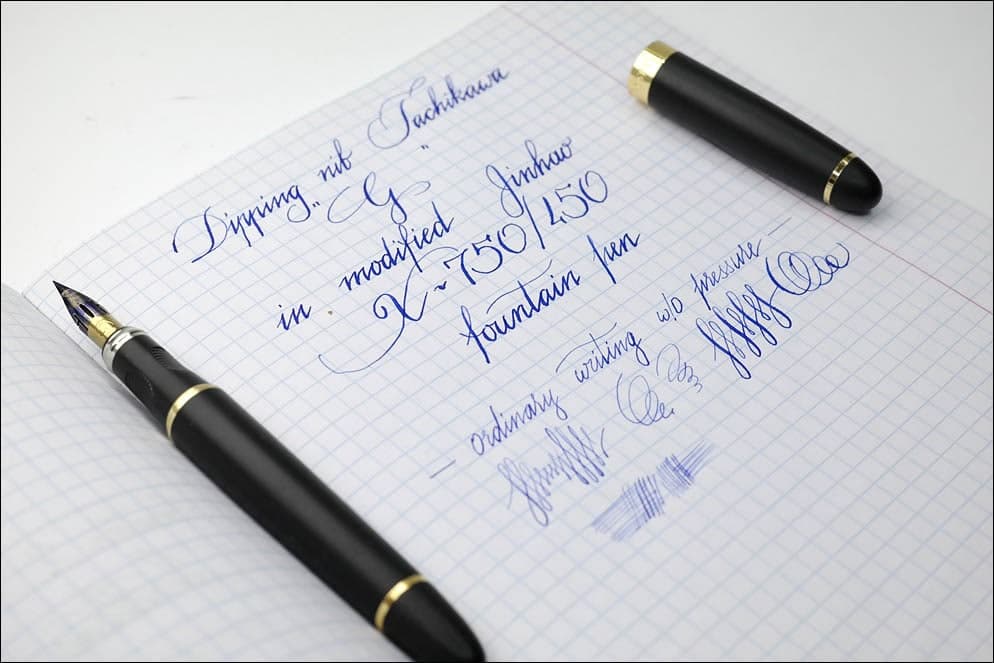 Dipping nib Tachikawa
„G"
in modified Jinhao
X-750/450
fountain pen
— ordinary writing w/o pressure —